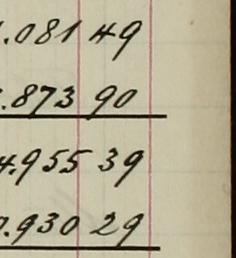 .081 49
.873 90
4.955 39
.930 29